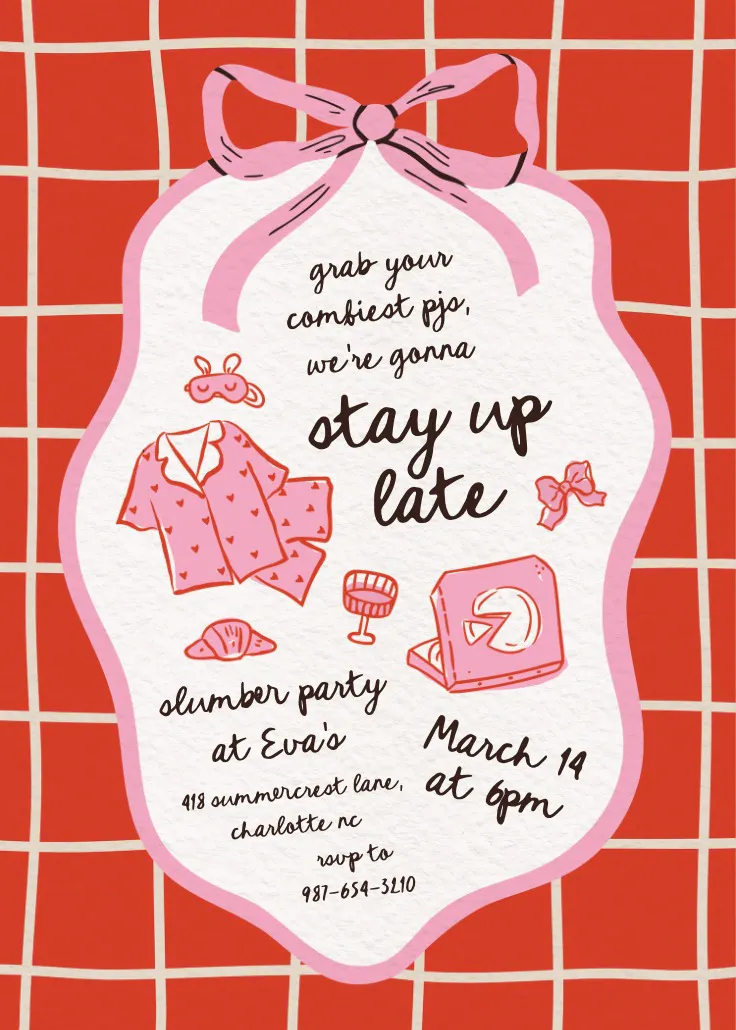 grab your
comfiest pjs,
we're gonna
stay up
late
slumber party
at Eva's
418 summercrest lane,
charlotte nc
rsvp to
987-654-3210
March 14
at 6pm